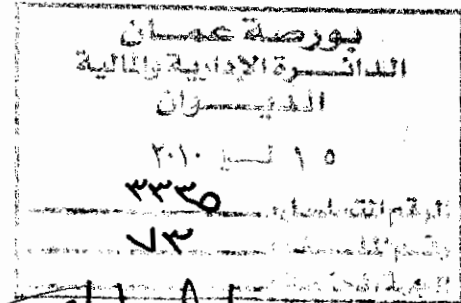 بورصة عمان
الدائرة الإدارية والمالية
الديوان
١٥ تموز ٢٠١٠
الرقم المتسلسل ٣٣٣٥
رقم الملف ٧٣
الجهة المختصة